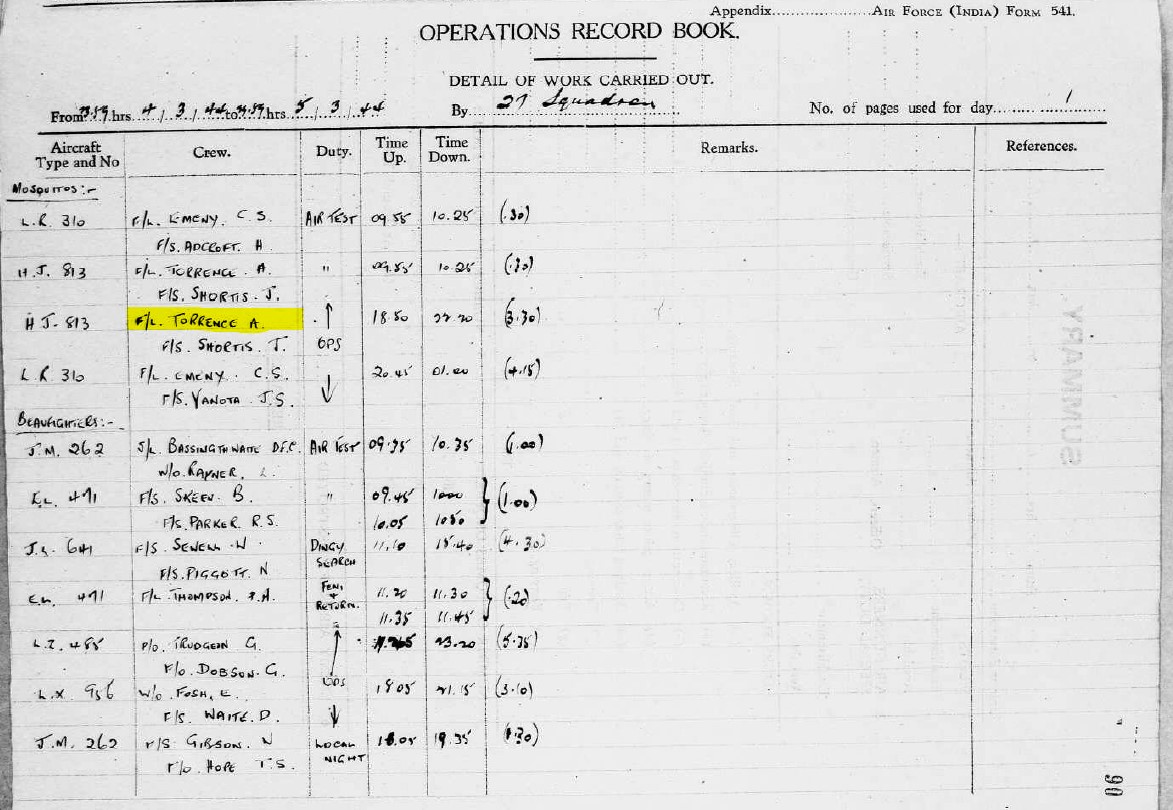 Appendix..................... AIR FORCE (INDIA) FORM 541.
OPERATIONS RECORD BOOK.
DETAIL OF WORK CARRIED OUT.
From 2359 hrs. 4 / 3 / 44 to 2359 hrs. 5 / 3 / 44 By 27 Squadron No. of pages used for day 1
Aircraft Type and No Crew. Duty. Time Up. Time Down. Remarks. References.
MOSQUITOS:-
L.R. 310 F/L. EMENY C S. AIR TEST 09.55 10.25 (.30)
F/S. ADCROFT. H
H.J. 813 F/L. TORRENCE. A. " 09.55 10.25 (.30)
F/S. SHORTIS. J.
H J. 813 F/L. TORRENCE A. 18.50 22.20 (3.30)
F/S. SHORTIS. J. OPS
L.R. 310 F/L. EMENY. C.S. 20.45 01.00 (4.15)
F/S. YANOTA J.S.
BEAUFIGHTERS:-
J.M. 262 S/L. BASSINGTHWAITE DFC. AIR TEST 09.35 10.35 (1.00)
W/O. RAYNER,
EL. 471 F/S. SKEEN. B. " 09.45 1000 (1.00)
F/S. PARKER R.S. 10.05 1050
641 F/S SEWELL. W DINGY SEARCH 11.10 15.40 (4.30)
F/S. PIGGOTT. N
EL. 471 F/L. THOMPSON. FEN, + RETURN. 11.20 11.30 (.20)
11.35 11.45
L.Z. 485 P/O. TRUDGEON G. 23.20 (5.35)
F/O. DOBSON. G.
L.X. 956 W/O. FOSH, E. OPS 18.05 21.15 (3.10)
F/S. WAITE. D.
J.M. 262 F/S GIBSON. N LOCAL NIGHT 18.05 19.35 (1.30)
F/O. HOPE T.S.
SUMMARY.
90